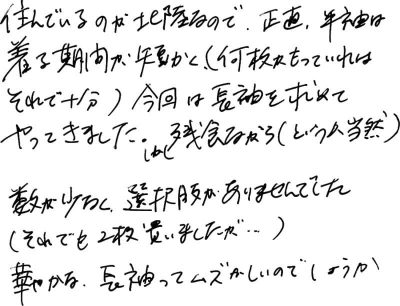 住んでいるのが北陸なので、正直、半袖は
着る期間が短かく、(何枚かもっていれば
それで十分) 今回は長袖を求めて
やってきました。しかし残念ながら(というか当然)
数が少なく、選択肢がありませんでした
(それでも2枚買いましたが…)
華やかな、長袖ってムズかしいのでしょうか